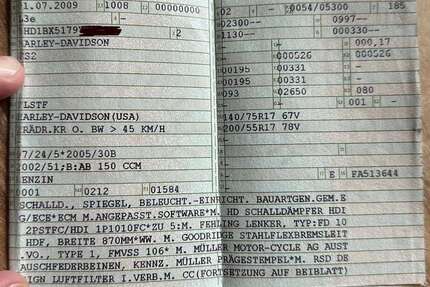 1.07.2009 1008 00000000 0054/05300 185
L3e 02300-- 0997--
HD1BX5179 2 1130-- 000330--
ARLEY-DAVIDSON 000,17
S2 000526 000526
00195 00331
00195 00331
LSTF 093 02650 080
001
ARLEY-DAVIDSON(USA) 140/75R17 67V
RÄDR.KR O. BW > 45 KM/H 200/55R17 78V
7/24/5*2005/30B
2002/51;B:AB 150 CCM
ENZIN E FA513644
0001 0212 01584
SCHALLD., SPIEGEL, BELEUCHT.-EINRICHT. BAUARTGEN.GEM.E
G/ECE*ECM M.ANGEPASST.SOFTWARE*M. HD SCHALLDÄMPFER HDI
2PSTFC/HDI 1P1010FC*ZU 5:M. FEHLING LENKER, TYP:FD 10
HDF, BREITE 870MM*WW. M. GOODRIDGE STAHLFLEXBREMSLEIT
.VO., TYPE 1, FMVSS 106* M. MÜLLER MOTOR-CYCLE AG AUST
AUSCHFEDERBEINEN, KENNZ. MÜLLER PRÄGESTEMPEL*M. RSD DE
IGN LUFTFILTER I.VERB.M. CC(FORTSETZUNG AUF BEIBLATT)